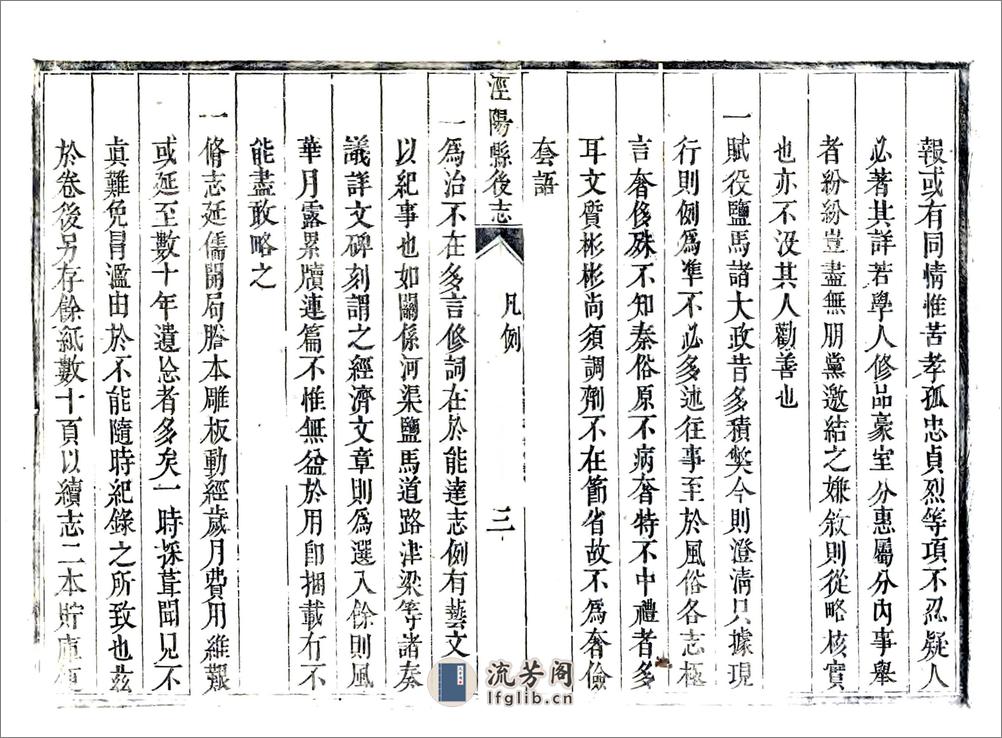 報或有同情惟苦孝孤忠貞烈等項不忍疑人
必著其詳若學人修品豪室分惠屬分內事舉
者紛紛豈盡無朋黨邀結之嫌敘則從略核實
也亦不没其人勸善也
一賦役鹽馬諸大政昔多積獘今則澄清只據現
行則例爲凖不必多述往事至於風俗各志極
言奢侈殊不知秦俗原不病奢特不中禮者多
耳文質彬彬尚須調劑不在節省故不爲奢儉
套語
涇陽縣後志
凡例
三
一爲治不在多言修詞在於能達志例有藝文
以紀事也如關係河渠鹽馬道路津梁等諸奏
議詳文碑刻謂之經濟文章則爲選入餘則風
華月露累牘連篇不惟無益於用卽捆載有不
能盡敢略之
一脩志延儒開局謄本雕板動經歲月費用維艱
或延至數十年遺忘者多矣一時採葺聞見不
眞難免冒濫由於不能隨時紀錄之所致也茲
於卷後另存餘紙數十頁以續志二本貯庫
流芳阁
lfglib.cn